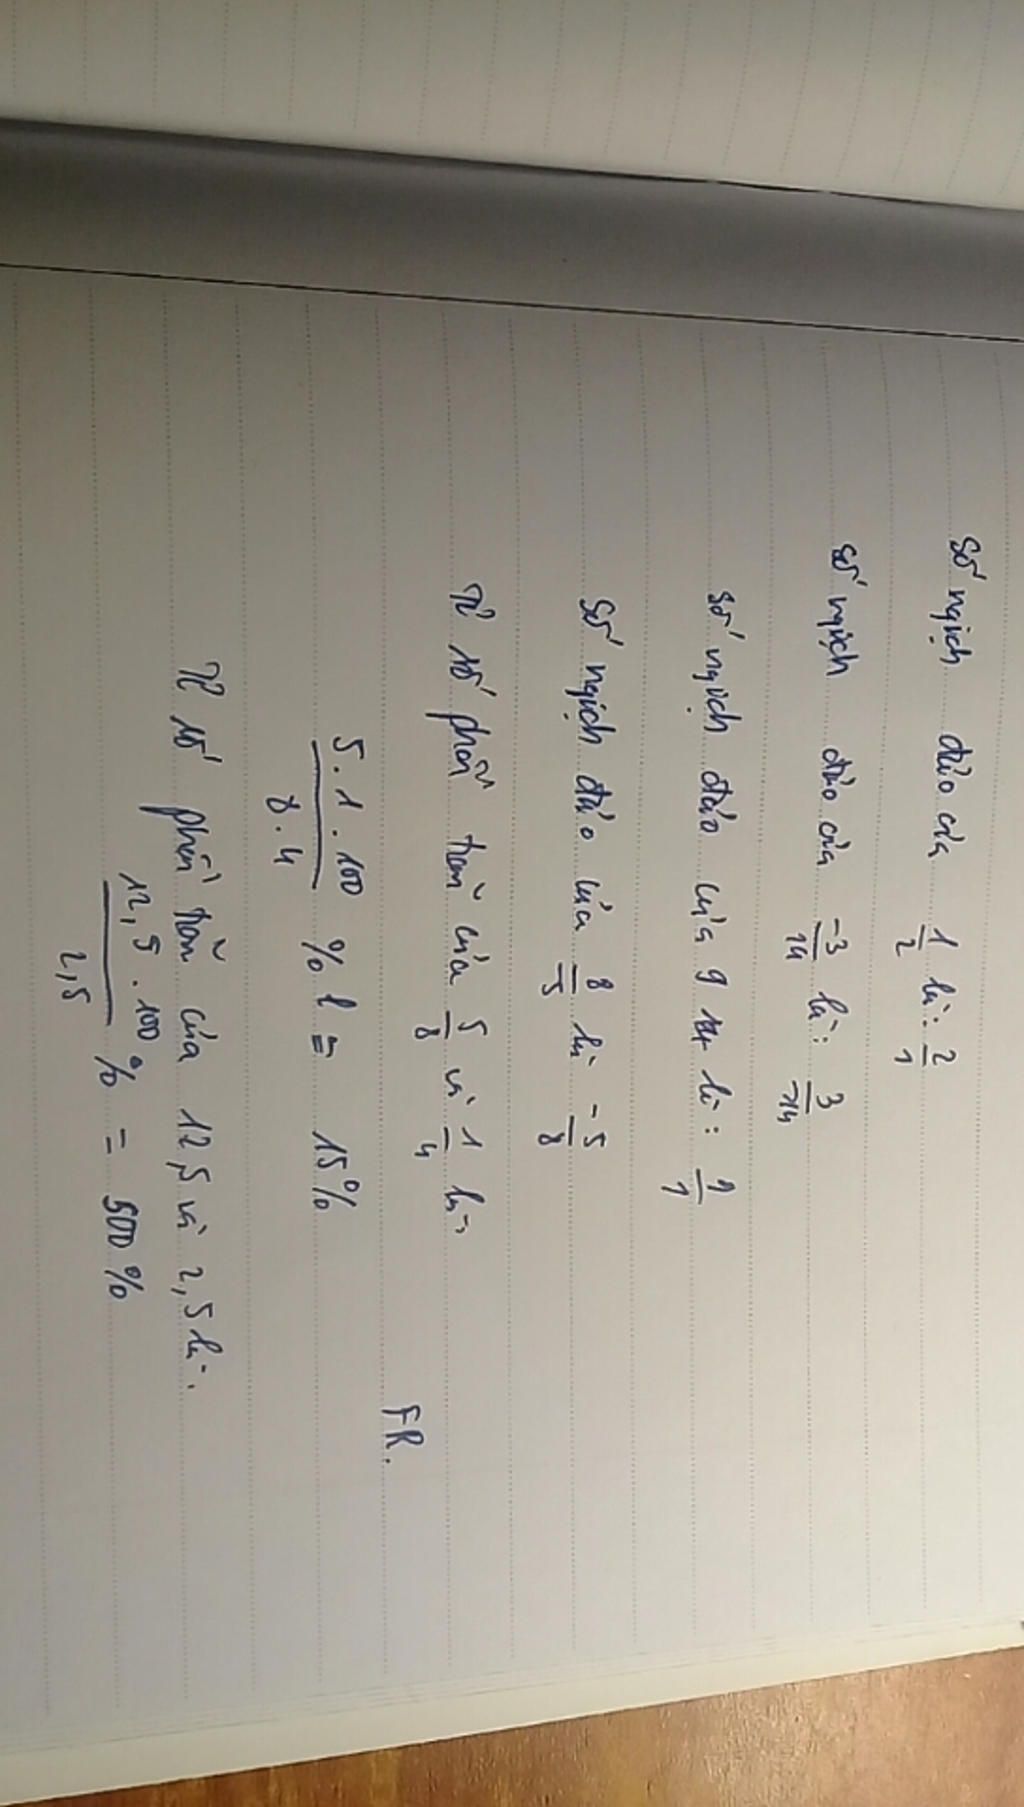 số nghịch đảo của 1/2 là: 2/1
số nghịch đảo của -3/14 là: 3/-14
số nghịch đảo của 9 là: 9/1
số nghịch đảo của 8/5 là -5/8
Tỉ số phần trăm của 5/8 và 1/4 là:
5.1.100/8.4 % = 15%
FR.
Tỉ số phần trăm của 12,5 và 2,5 là:
12,5.100/2,5 % = 500%